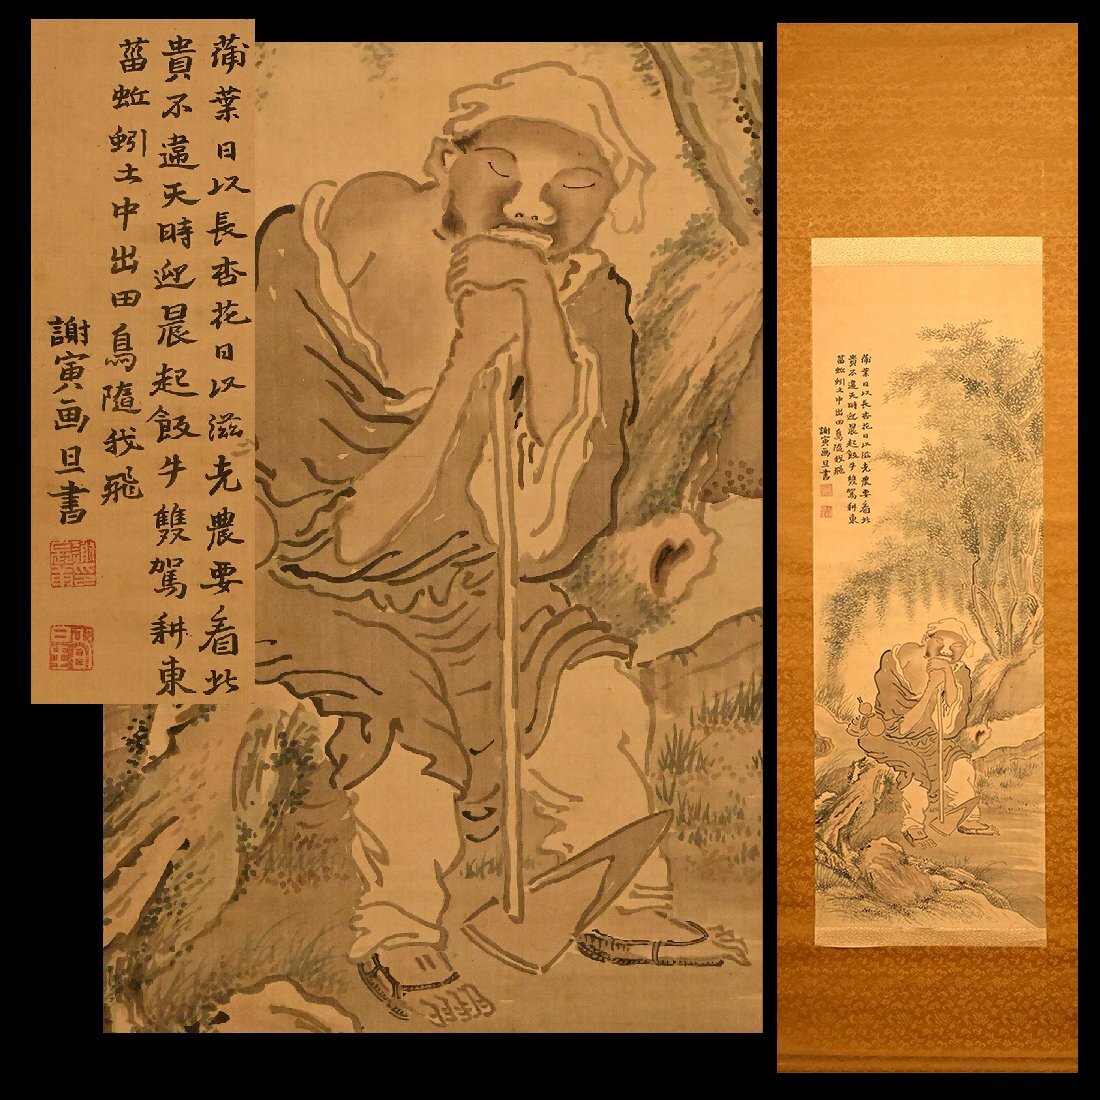 蒲葉日以長杏花日以滋老農要看此
貴不違天時迎晨起飯牛雙駕耕東
菑蚯蚓土中出田鳥隨我飛
謝寅画且書
蒲葉日以長杏花日以滋老農要看此
貴不違天時迎晨起飯牛雙駕耕東
菑蚯蚓土中出田鳥隨我飛
謝寅画且書